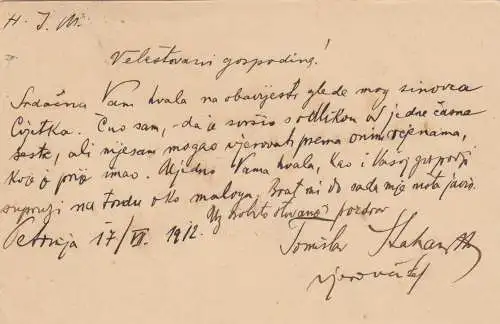 H. J. M.
Veleštovani gospodine!
Srdačna Vam hvala na obavijesti glede mog sinovca
Cvijetka. Čuo sam, da je svršio s odlikom od jedne časne
sestre, ali nijesam mogao vjerovati prema onim ocjenama,
koje je prije imao. Ujedno Vama hvala, kao i Vašoj gospodji
supruzi na trudu oko maloga. Brat mi do sada nije ništa javio.
Uz pozdrav
Petrinja 17/VI. 1912. Tomislav
vjeroučitelj